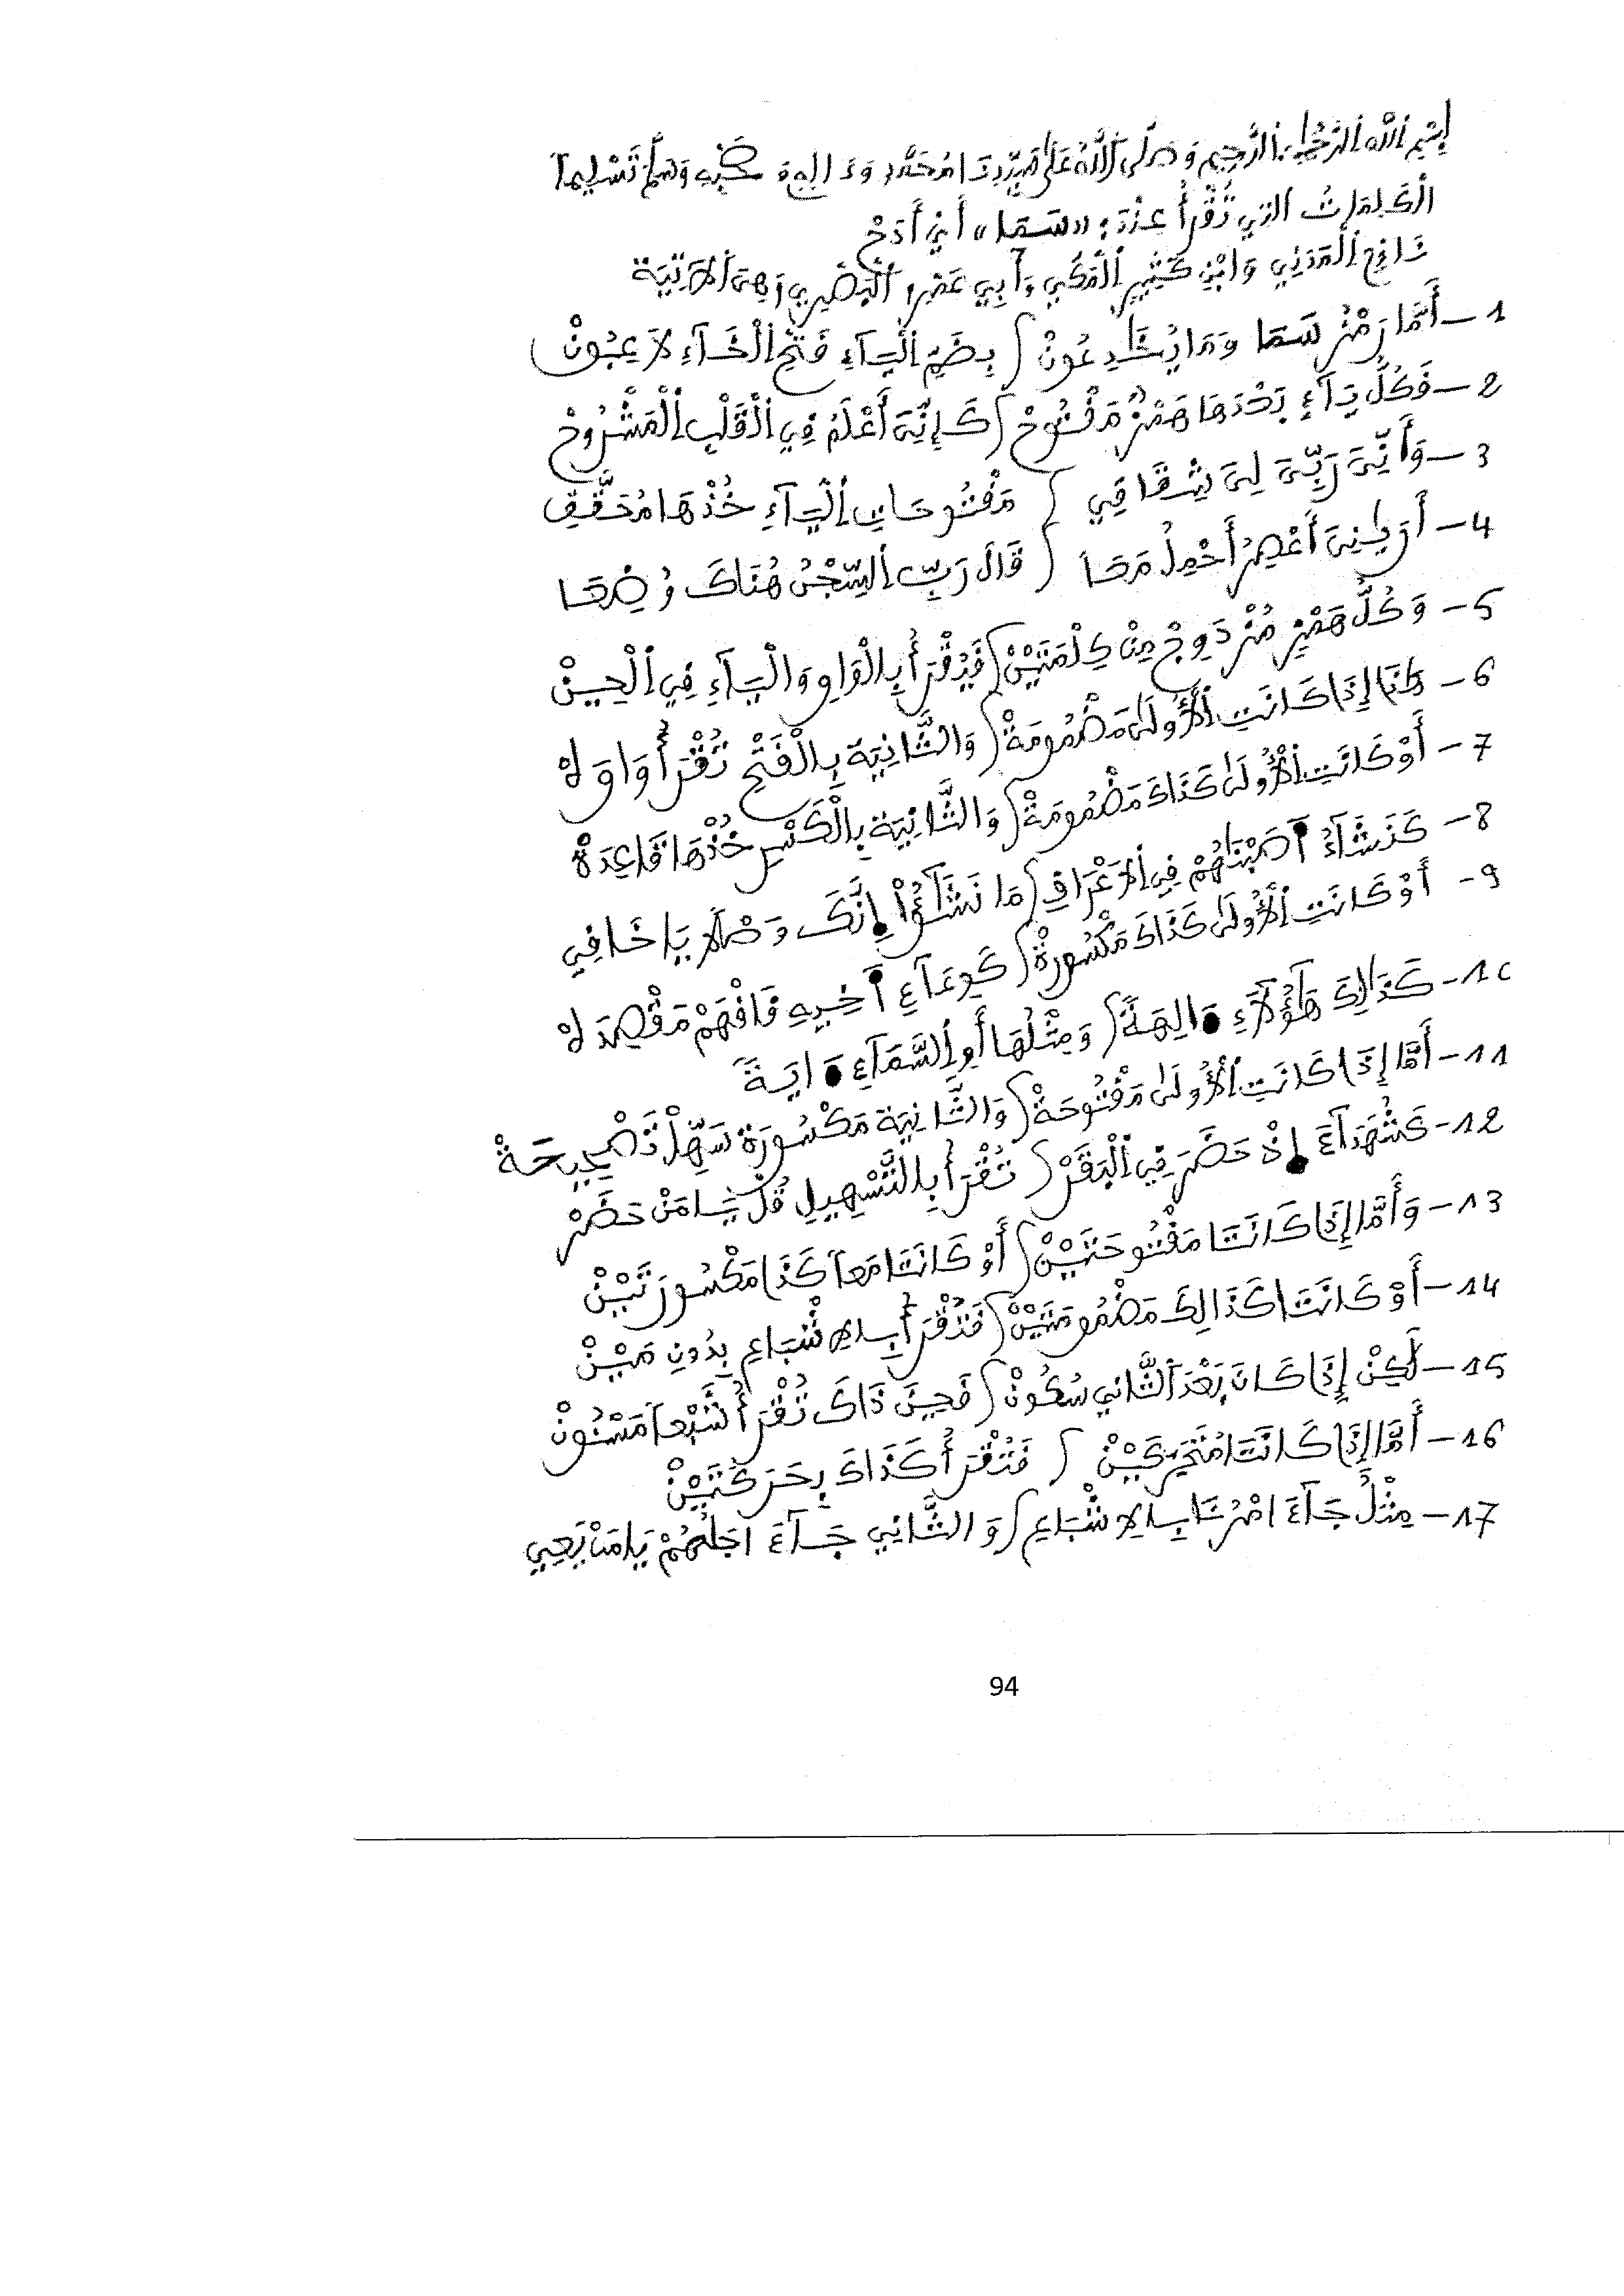 بِسْمِ اللَّهِ الرَّحْمَٰنِ الرَّحِيمِ وَصَلَّى اللَّهُ عَلَى سَيِّدِنَا مُحَمَّدٍ وَءَالِهِ وَصَحْبِهِ وَسَلَّمَ تَسْلِيماً
الْكَلِمَاتُ الَّتِي تُقْرَأُ عِنْدَ: «سَمَا» أَيْ
نَافِعِ الْمَدَنِي وَابْنِ كَثِيرِ الْمَكِّي وَأَبِي عَمْرٍو الْبَصْرِي وَهِيَ الْآتِيَة
1 - أَمَّا رَمْزُ سَمَا وَمَا يُخَٰدِعُونْ ( بِضَمِّ الْيَآءِ فَتْحِ الْخَآءِ لَاعِبُونْ
2 - فَكُلُّ يَآءٍ بَعْدَهَا هَمْزٌ مَفْتُوحْ ( كَإِنِّيَ أَعْلَمُ فِي الْقَلْبِ الْمَشْرُوحْ
3 - وَأَنِّيَ رَبِّيَ لِيَ شِقَاقِي ( مَفْتُوحَاتِ الْيَآءِ خُذْهَا مُحَقَّقِ
4 - أَرَىٰنِيَ أَعْصِرُ أَحْمِلُ مَعَا ( قَالَ رَبِّ السِّجْنُ هُنَاكَ وُضِعَا
5 - وَكُلُّ هَمْزٍ مُزْدَوِجْ مِنْ كِلْمَتَيْنْ ( فَيُقْرَأُ بِالْوَاوِ وَالْيَآءِ فِي الْحِينْ
6 - هَٰذَا إِذَا كَانَتِ الْأُولَىٰ مَضْمُومَةْ ( وَالثَّانِيَة بِالْفَتْحِ تُقْرَأُ وَاوَ لَهْ
7 - أَوْ كَانَتِ الْأُولَىٰ كَذَاكَ مَضْمُومَةْ ( وَالثَّانِيَة بِالْكَسْرِ خُذْهَا قَاعِدَةْ
8 - كَنَشَآءُ أَصَبْنَٰهُمْ فِي الْأَعْرَافِ ( مَا نَشَٰٓؤُاْ إِنَّكَ وَصْلًا يَا خَافِي
9 - أَوْ كَانَتِ الْأُولَىٰ كَذَاكَ مَكْسُورةْ ( كَوِعَآءِ أَخِيهِ فَافْهَمْ مَقْصِدَهْ
10 - كَذَٰلِكَ هَٰٓؤُلَآءِ ءَالِهَةً ( وَمِثْلُهَا أَوِ السَّمَآءِ ءَايَةً
11 - أَمَّا إِذَا كَانَتِ الْأُولَىٰ مَفْتُوحَةْ ( وَالثَّانِيَة مَكْسُورَة سَهِّلْ تَصْحِيحَةْ
12 - كَشُهَدَآءَ إِذْ حَضَرَ فِي الْبَقَرْ ( تُقْرَأُ بِالتَّسْهِيلِ قُلْ يَا مَنْ حَضَرْ
13 - وَأَمَّا إِذَا كَانَتَا مَفْتُوحَتَيْنْ ( أَوْ كَانَتَا مَعاً كَذَا مَكْسُورَتَيْنْ
14 - أَوْ كَانَتَا كَذَالِكَ مَضْمُومَتَيْنْ ( فَتُقْرَأُ بِالْإِشْبَاعِ بِدُونِ مَيْنْ
15 - لَٰكِنْ إِذَا كَانَ بَعْدَ الثَّانِي سُكُونْ ( فَحِينَ ذَاكَ تُقْرَأُ شَبْعاً مَسْنُونْ
16 - أَمَّا إِذَا كَانَتَا مُتَحَرِّكَيْنْ ( فَتُقْرَأُ كَذَاكَ بِحَرَكَتَيْنْ
17 - مِثْلُ جَآءَ امْرُنَا بِالْإِشْبَاعِ ( وَالثَّانِي جَآءَ اجَلُهُمْ يَا مَنْ يَعِي
94